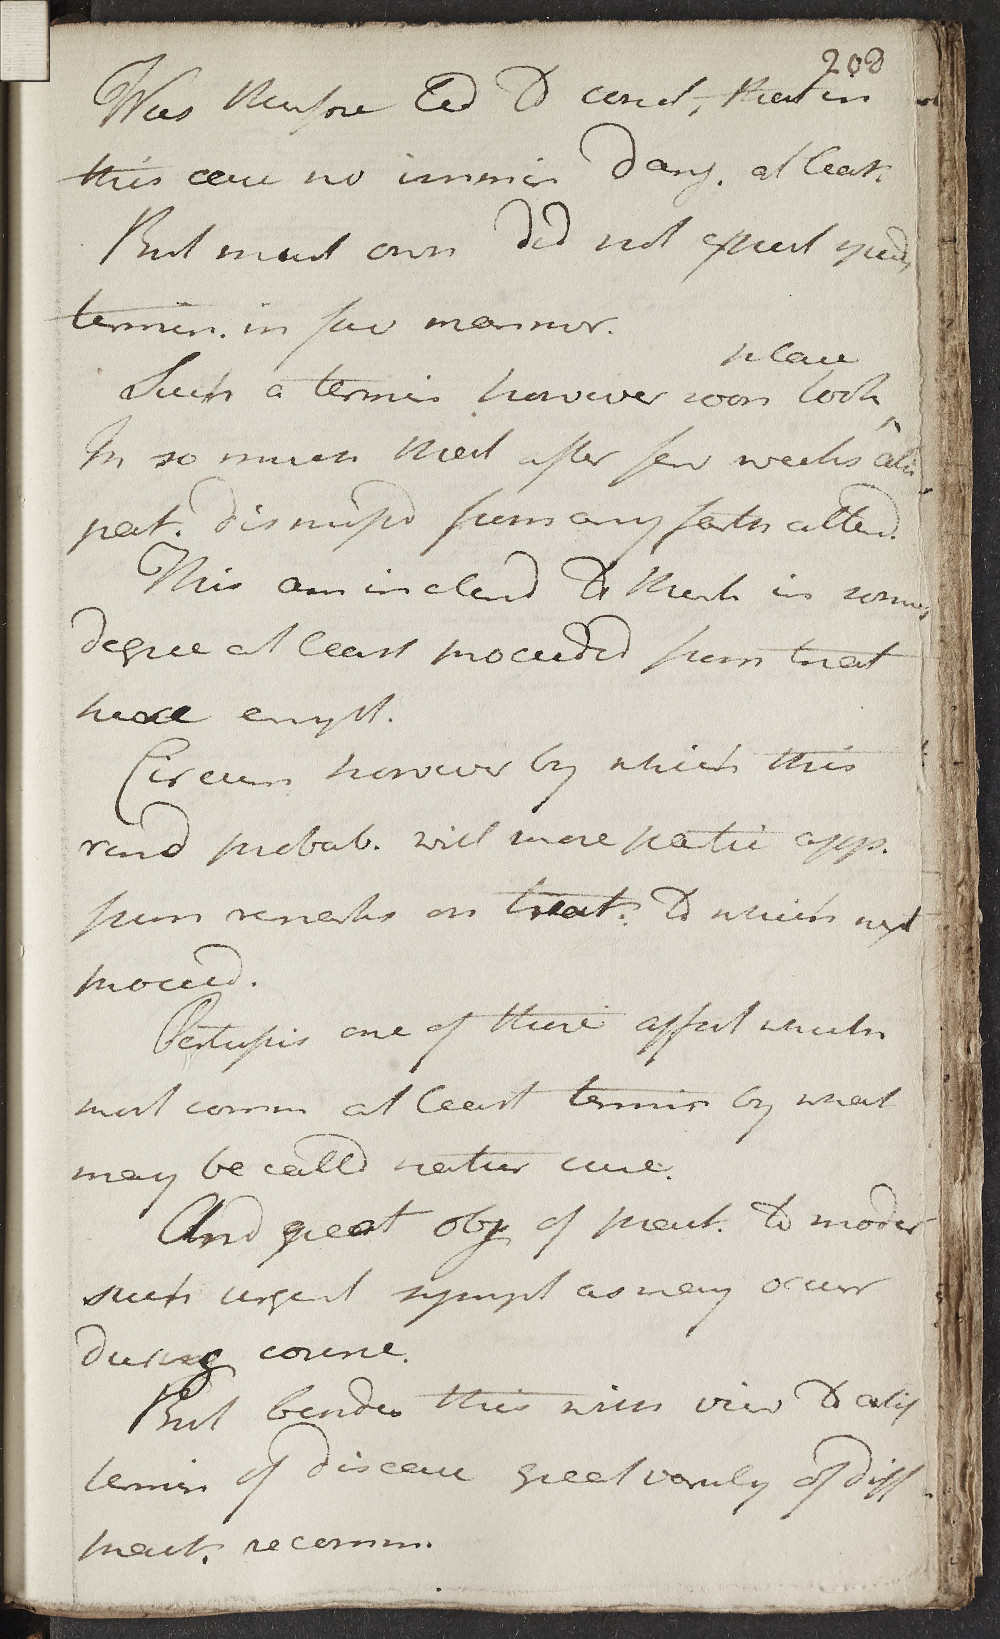 208
Was therefore led to concl, that in
this case no immin dang. at least.
But must own did not expect speedy
termin. in fav manner.
place
Such a termin however soon took
In so much that after few weeks
pat. dismissd from any farth attend.
This am inclend to think in some
degree at least proceeded from treat
here empl.
Circum however by which this
rend probab. will more partic app.
from remarks on treat. to which next
proceed.
Pertussis one of these affect which
most comm at least termin by what
may be calld natur cure.
And great obj of pract. to moder
such urgent sympt as may occur
during course.
But besides this with view to
termin of disease great variety of diff
pract. recomm.